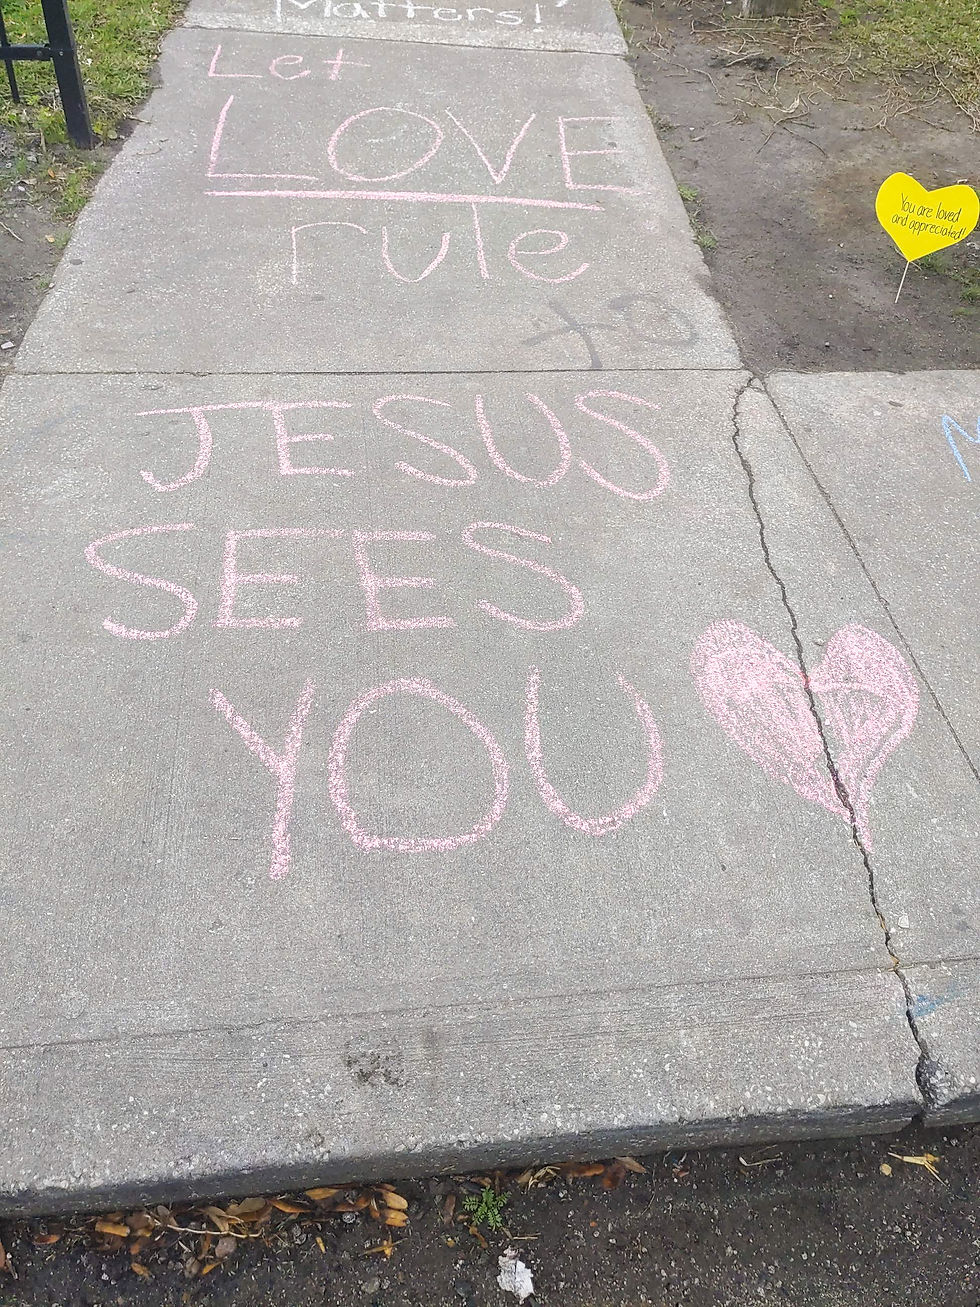 Matters!
Let
LOVE
rule
You are loved
and appreciated!
JESUS
SEES
YOU